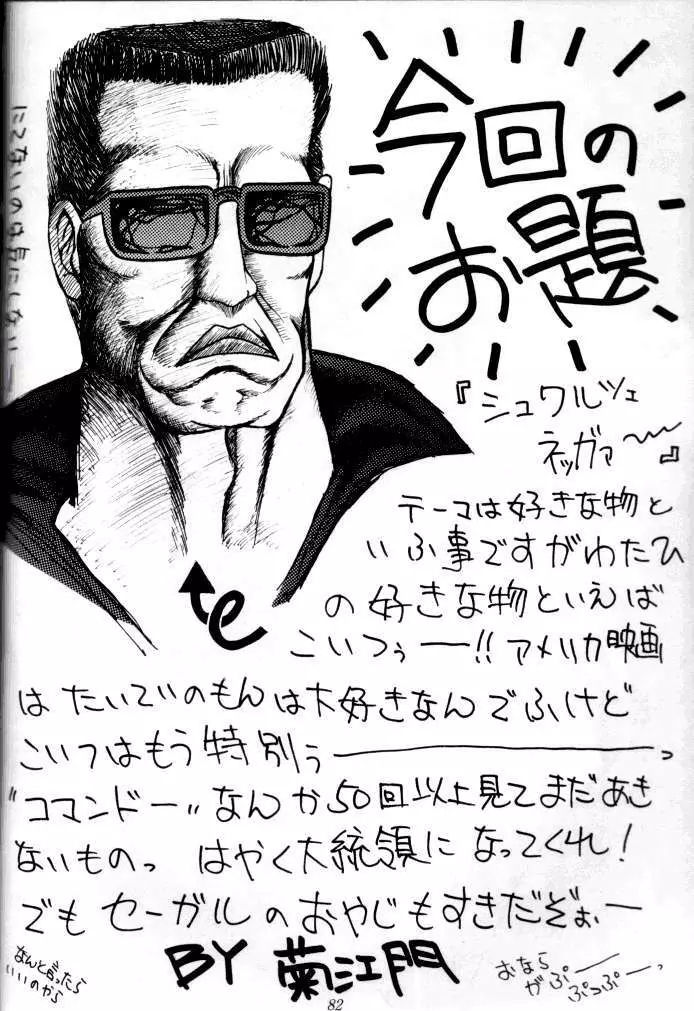 今回の
お題
『シュワルツェ
ネッガァ〜』
テーマは好きな物と
いふ事ですがわたひ
の好きな物といえば
こいつぅー!!アメリカ映画
はたいていのもんは大好きなんでふけど
こいつはもう特別ぅ――――っ
"コマンドー"なんか50回以上見てまだあき
ないものっ はやく大統領になってくれ!
でもセーガルのおやじもすきだぞぉー
BY 菊江門
にてないのは気にしないっ
なんと言ったら
いいのやら
おなら
がぷー
ぷっぷーっ
82